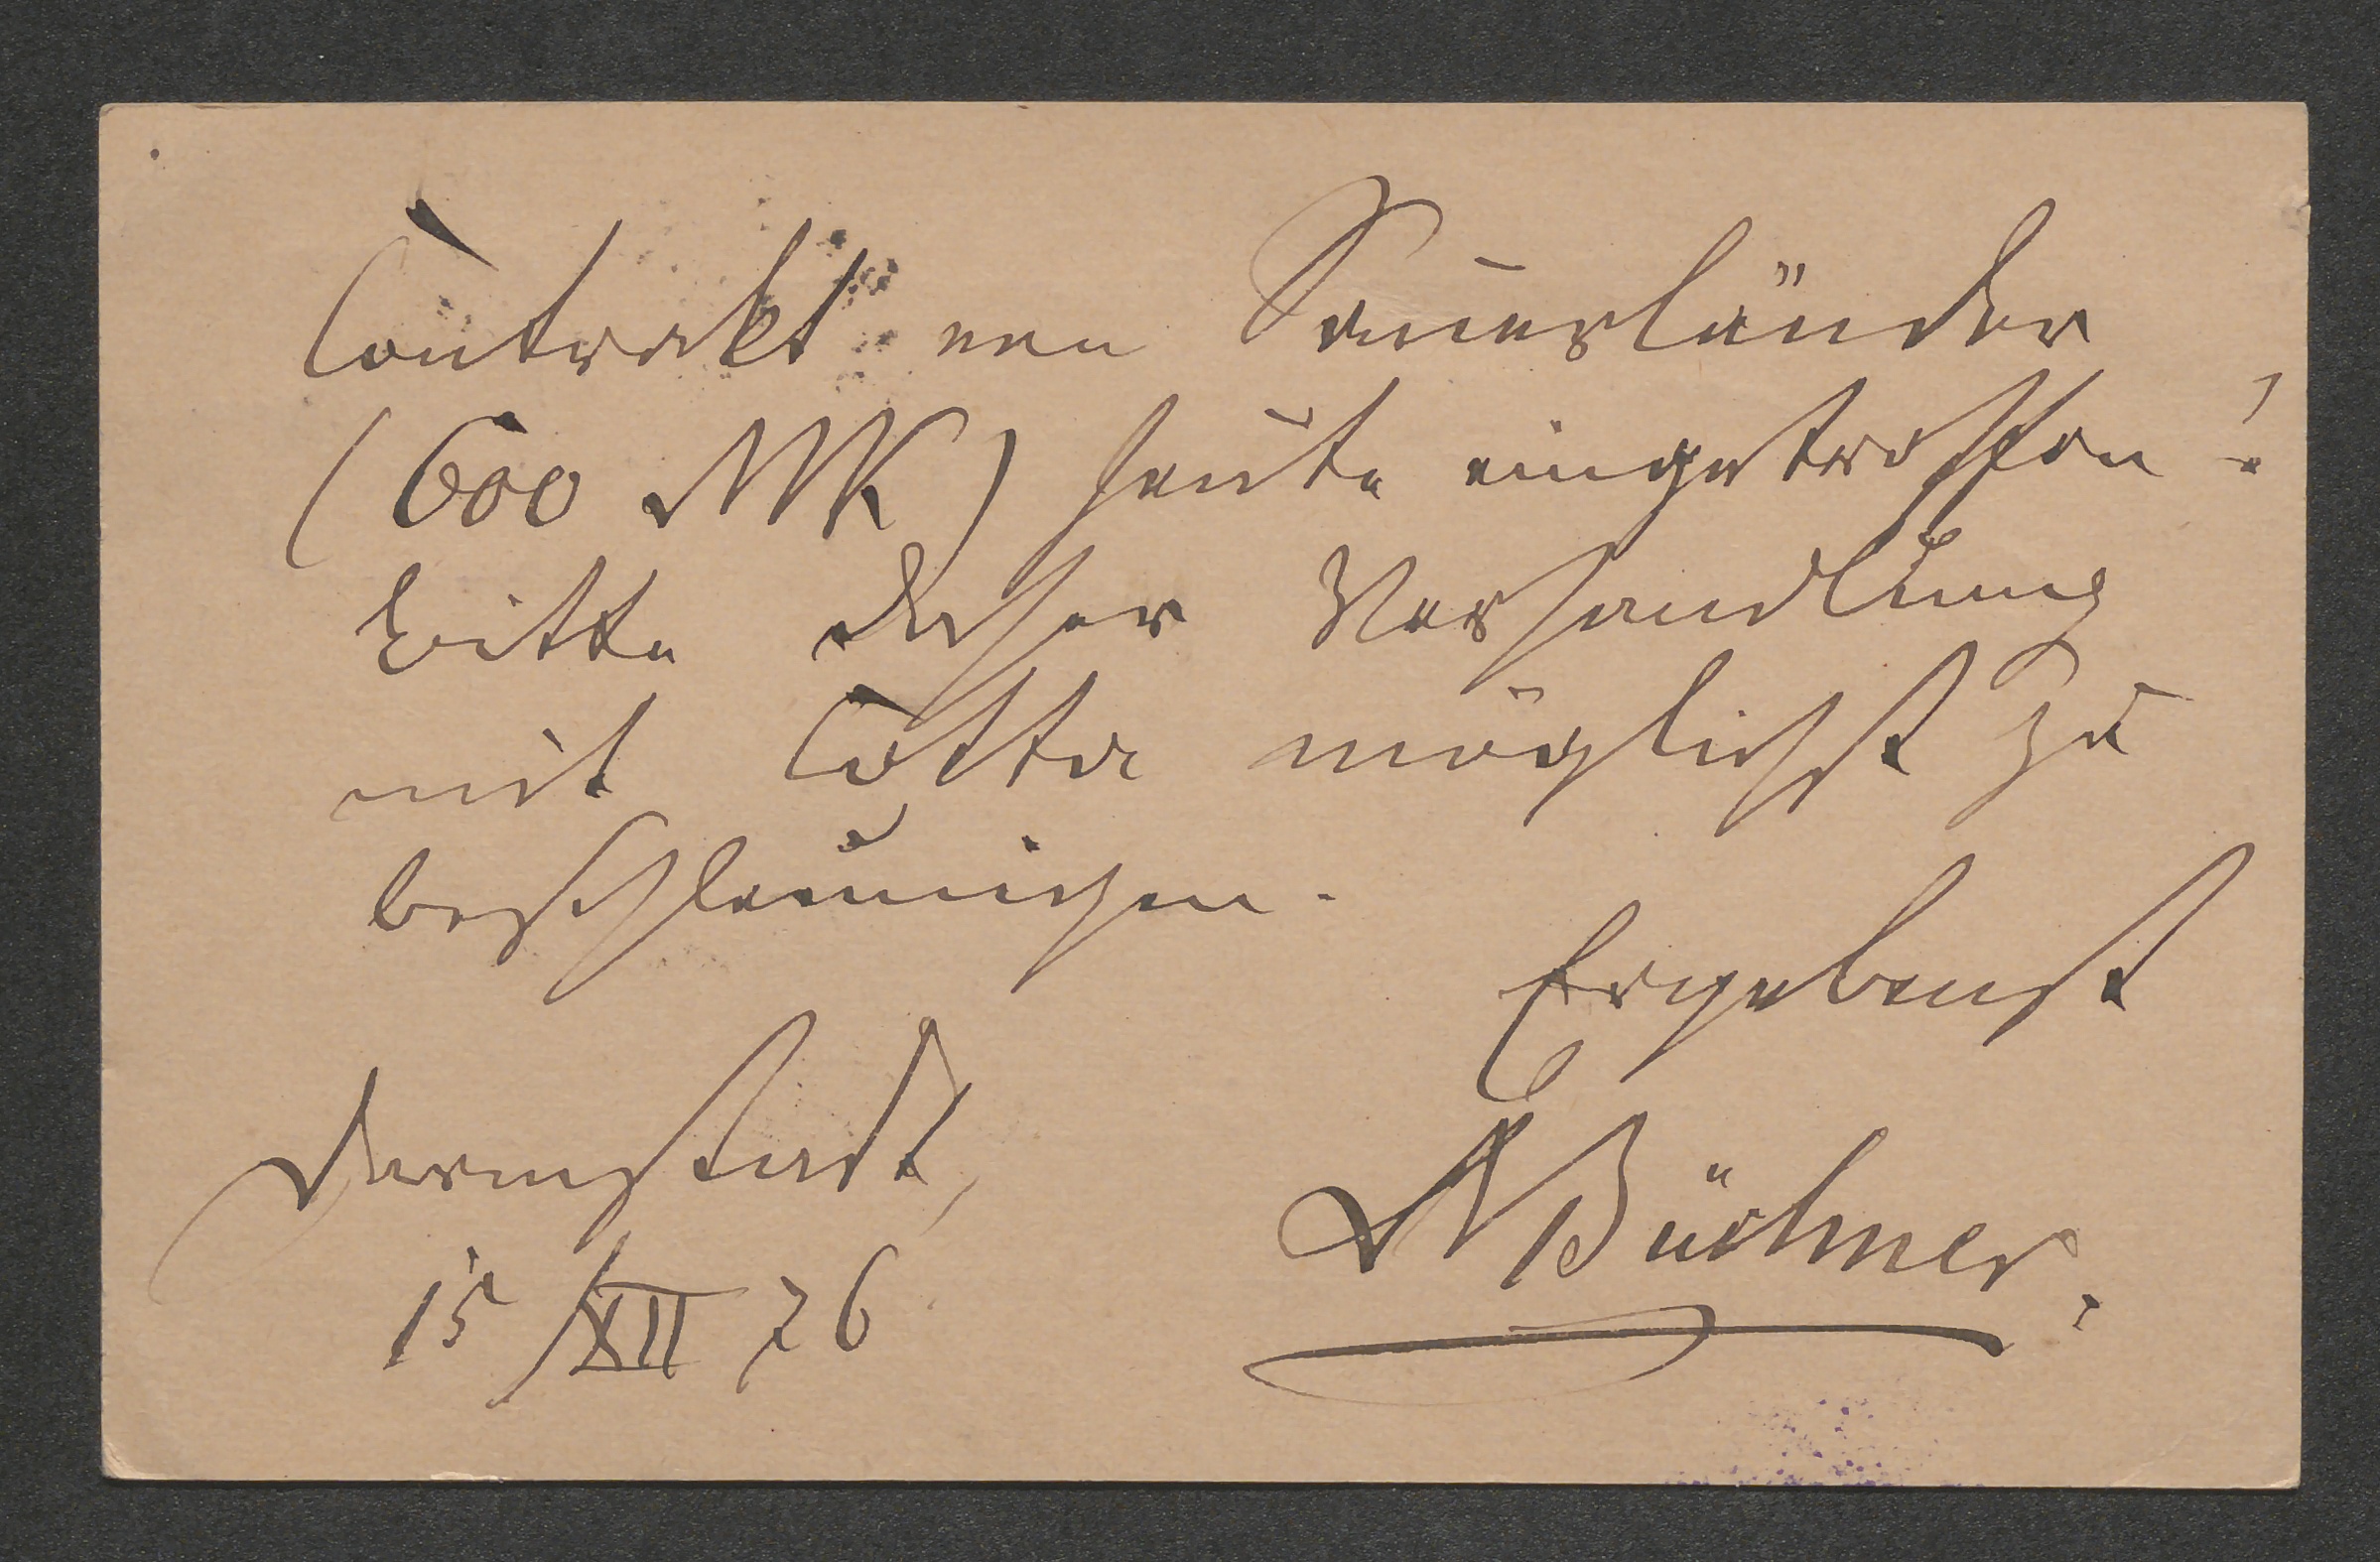 Contrakt von Sauerländer
(600 MK) heute eingetroffen!
bitte daher Verhandlung
mit Cotta möglichst zu
beschleunigen.
Ergebenst
Darmstadt,
15/XII 76
Büchner.